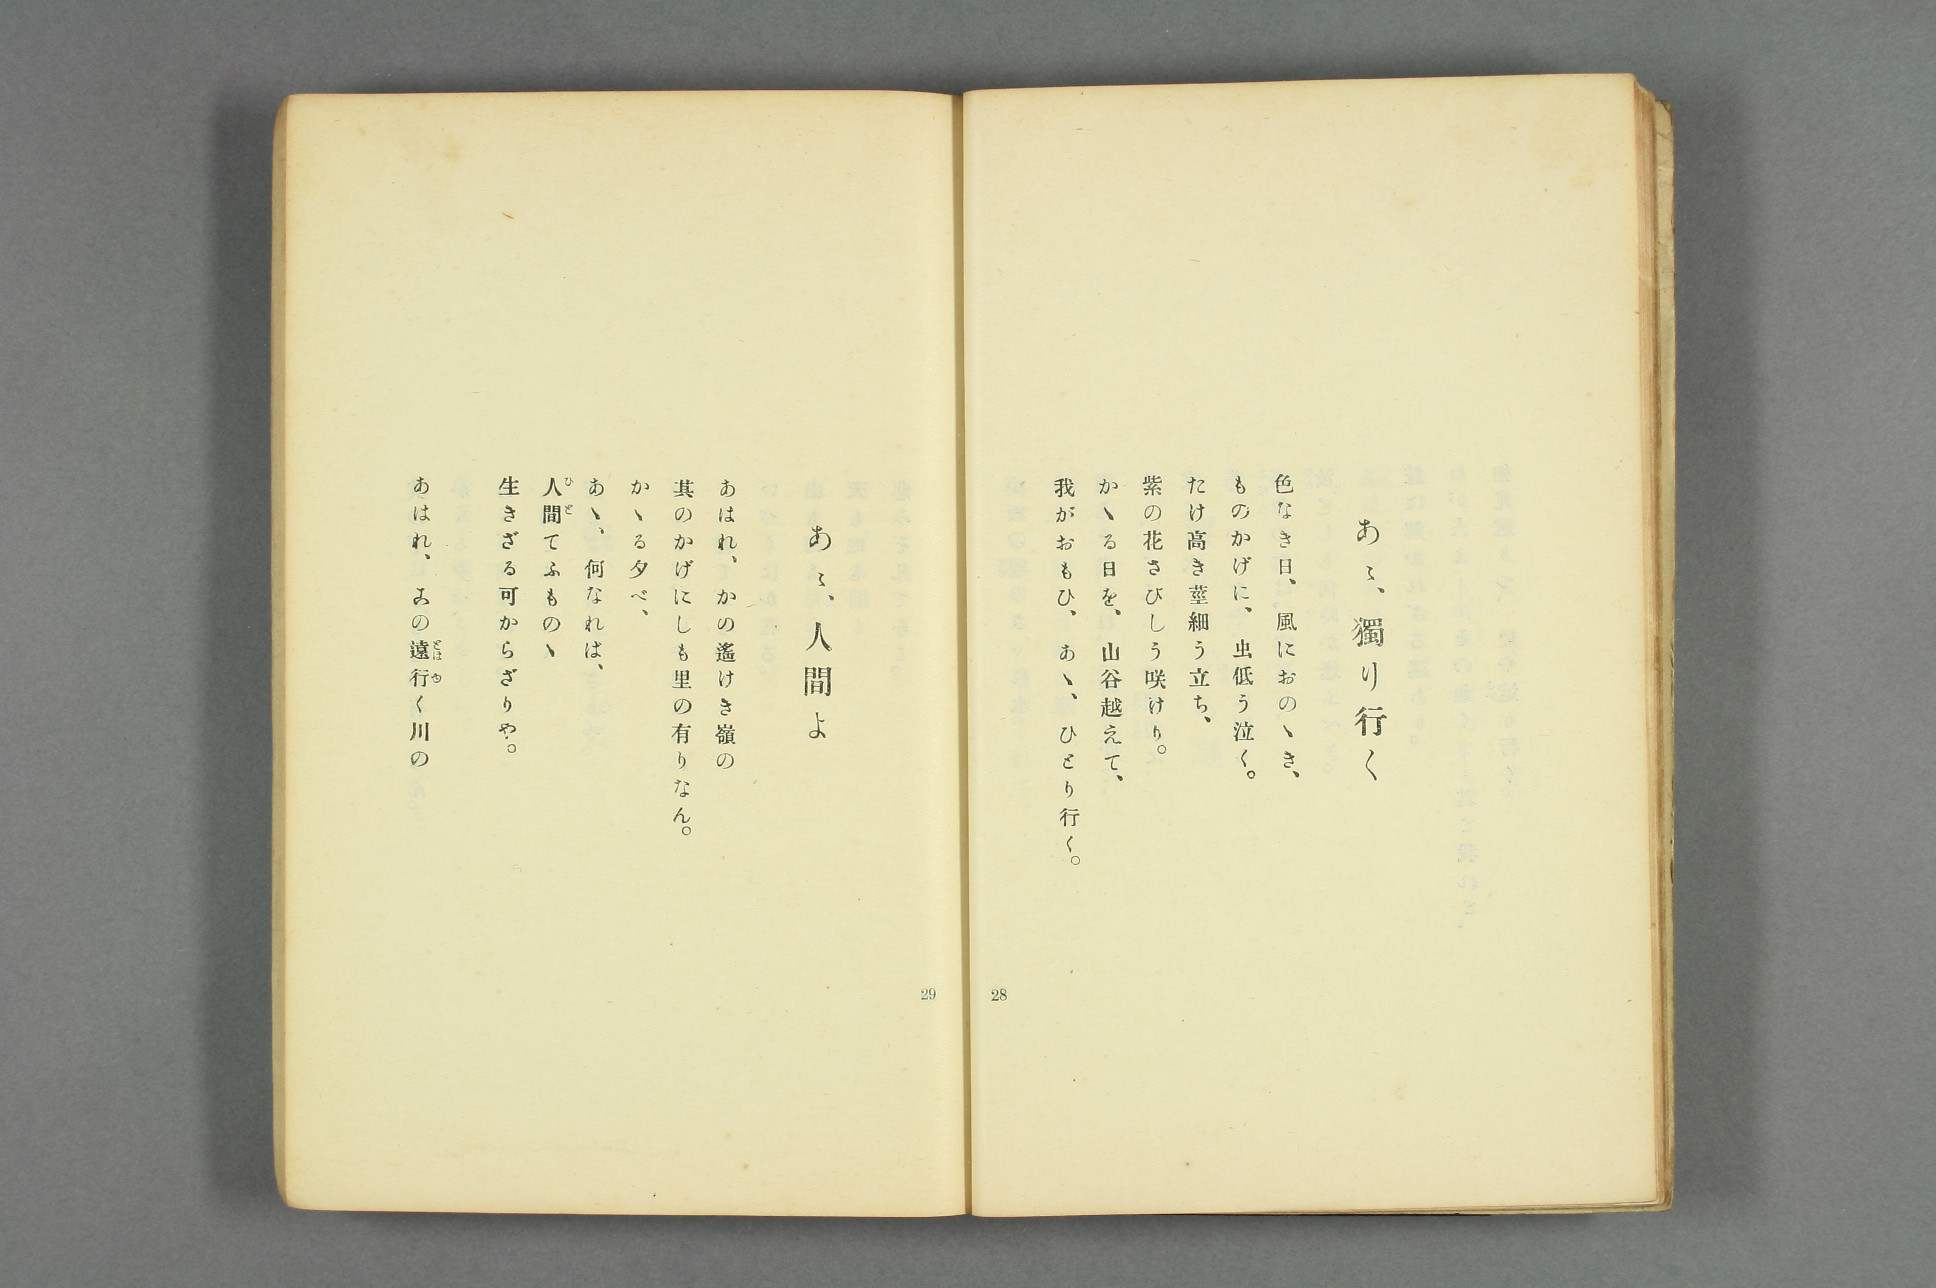 あゝ、獨り行く
色なき日、風におのゝき、
ものかげに、虫低う泣く。
たけ高き莖細う立ち、
紫の花さびしう咲けり。
かゝる日を、山谷越えて、
我がおもひ、あゝ、ひとり行く。
28
あゝ、人間よ
あはれ、かの遙けき嶺の
其のかげにしも里の有りなん。
かゝる夕べ、
あゝ、何なれば、
人間てふものゝ
ひと
生きざる可からざりや。
あはれ、この遠行く川の
とほゆ
29